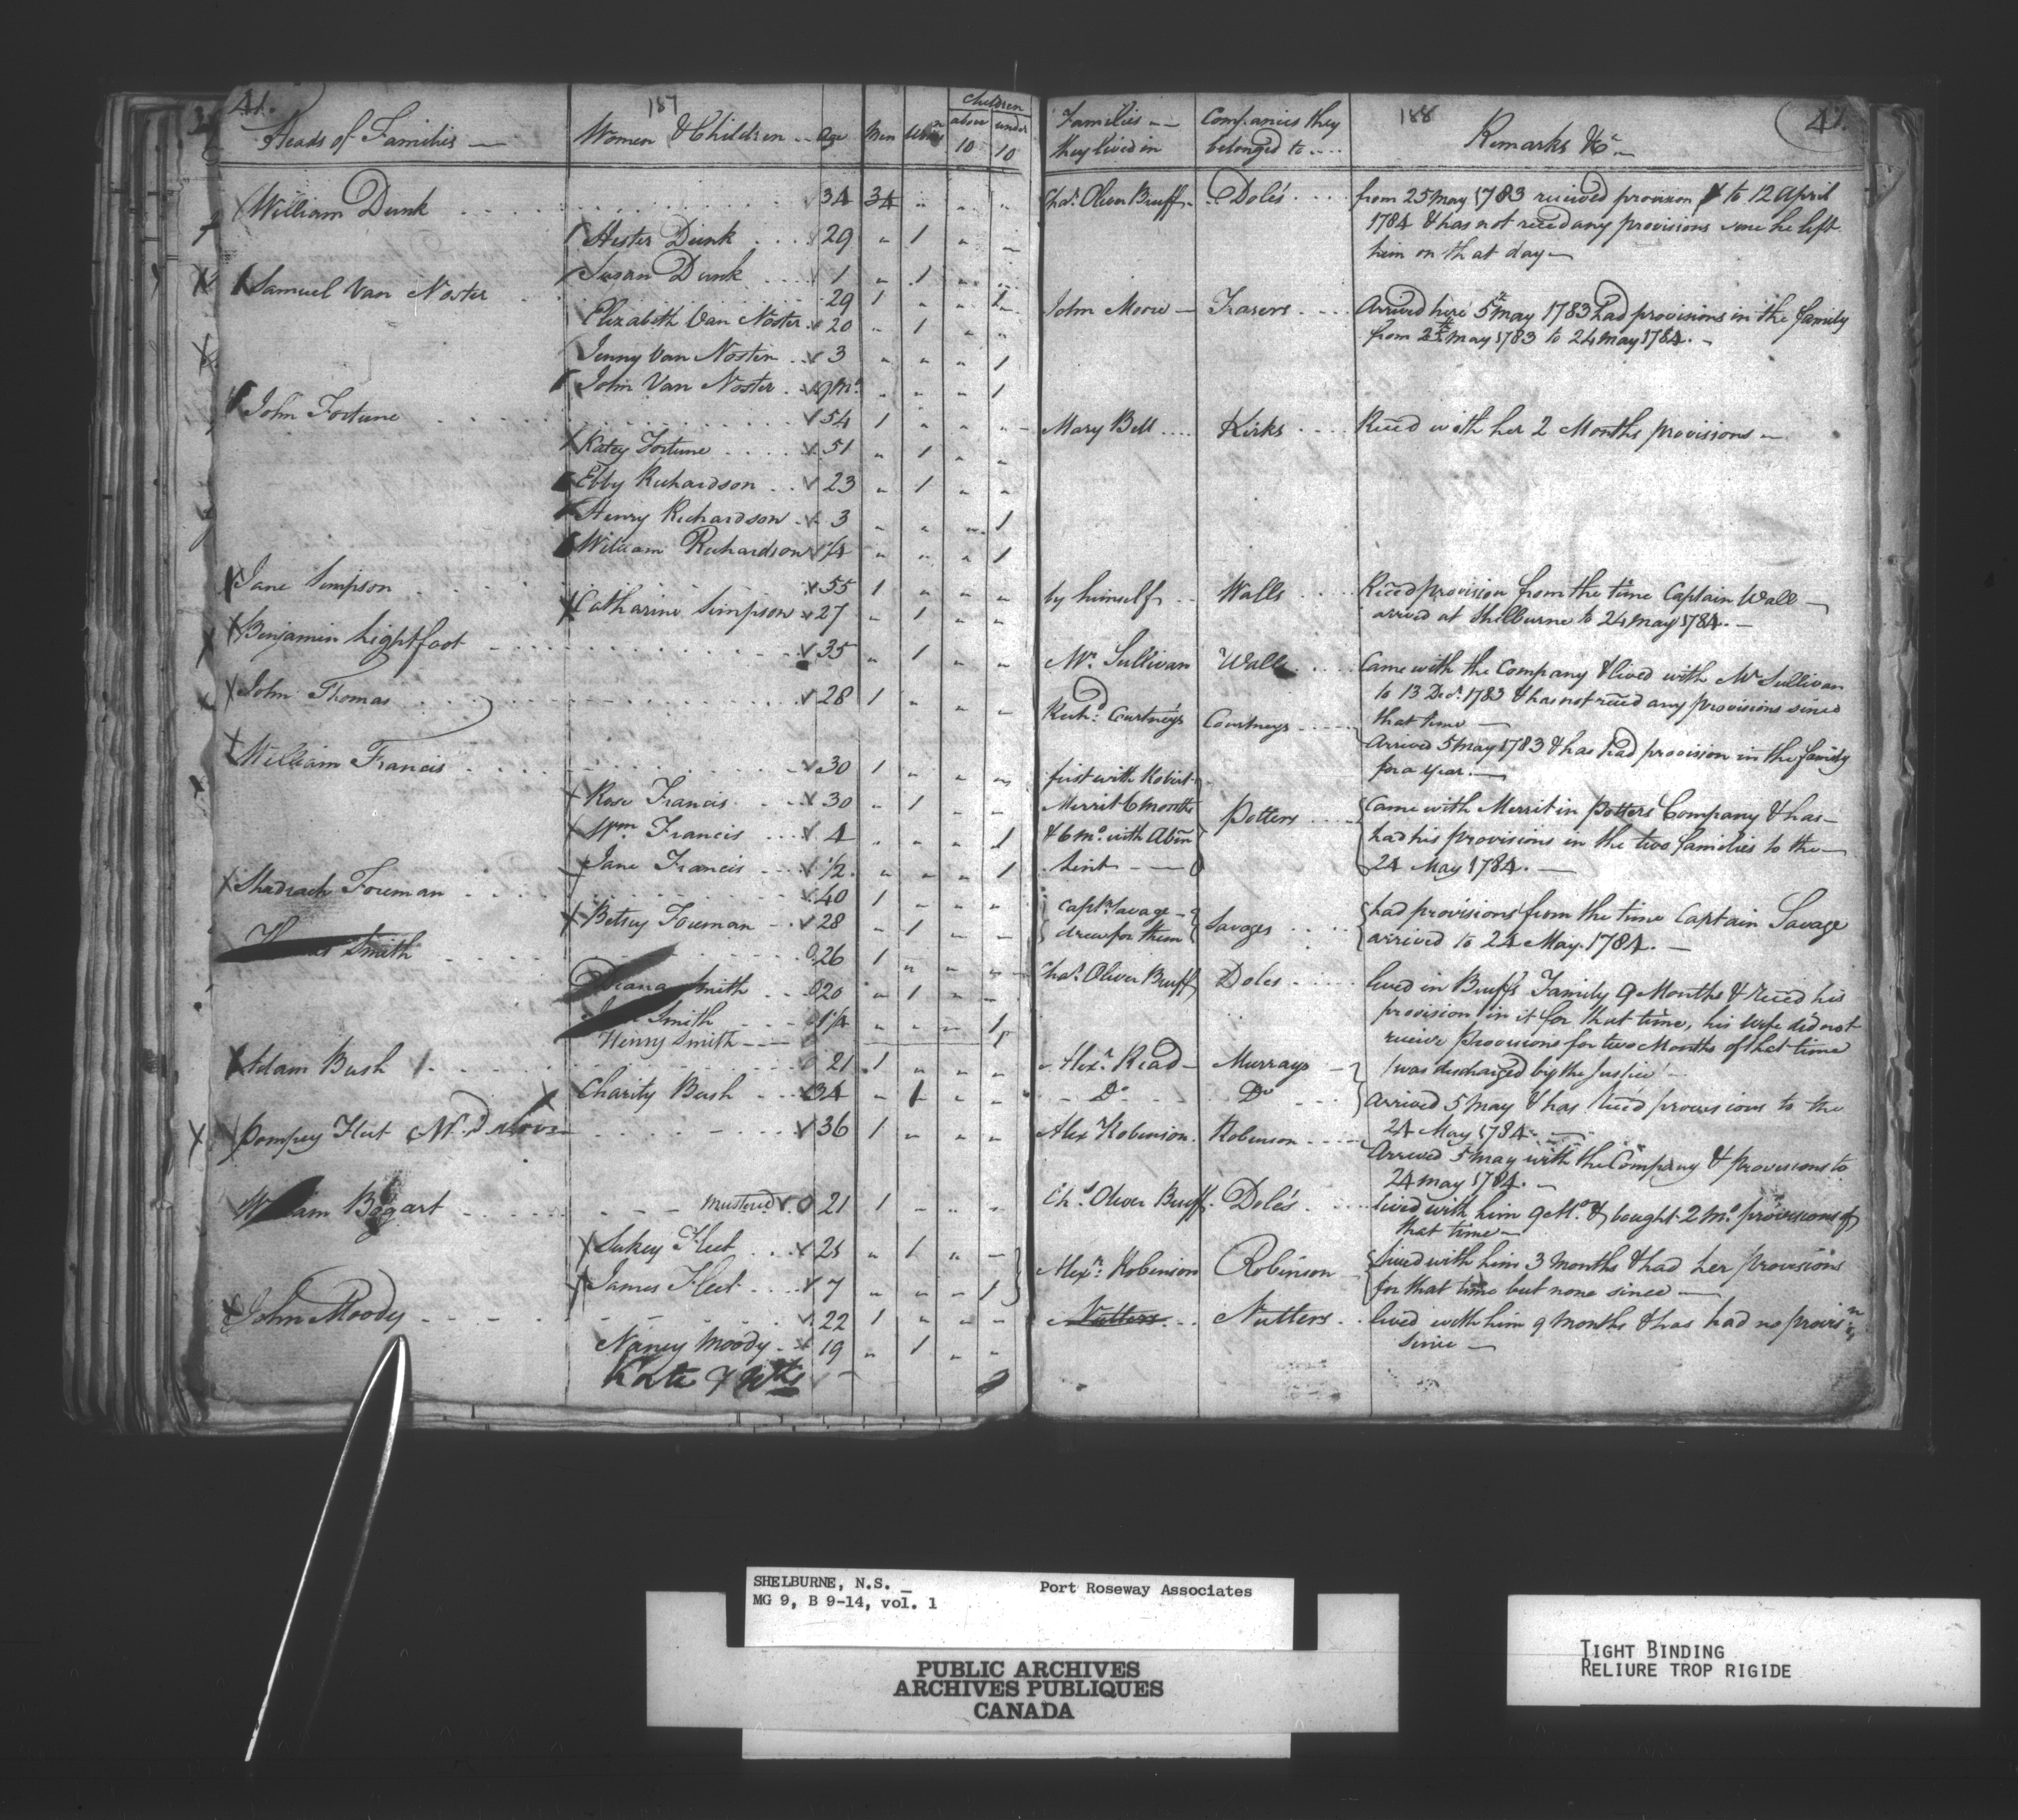 41. 187
Heads of Families Women & Children Age Men Women Children above 10 under 10
William Dunk 34 34 " " "
Hester Dunk 29 " 1 " "
Susan Dunk 1 " 1 " "
Samuel Van Noster 29 1 " "
Elizabeth Van Noster 20 " 1 " "
Jenny Van Noster 3 " " " 1
John Van Noster 9 Ms. " " " 1
John Fortune 54 1 " " "
Katey Fortune 51 " 1 " "
Ebby Richardson 23 " 1 " "
Henry Richardson 3 " " " 1
William Richardson 1/4 " " " 1
Jane Simpson 55 1 " " "
Catharine Simpson 27 " 1 " "
Benjamin Lightfoot 35 " 1 " "
John Thomas 28 1 " " "
William Francis 30 1 " " "
Rose Francis 30 " 1 " "
Wm Francis 4 " " " 1
Jane Francis 1/2 " " " 1
Shadrach Foreman 40 1 " " "
Betsey Foreman 28 " 1 " "
Smith 26 1 " " "
Diana Smith 20 " 1 " "
Smith 1/4 " " " 1
Henry Smith
Adam Bush 21 1 " " "
Charity Bush 34 " 1 " "
Pompey Fleet 36 1 " " "
William Bogart mustered 21 1 " "
Sukey Fleet 25 " 1 " "
James Fleet 7 " " " 1
John Moody 22 1 " " "
Nancy Moody 19 " 1 " "
188 41.
Families they lived in Companies they belonged to Remarks &c
Chas. Oliver Bruff Dole's from 25 May 1783 received provision to 12 April
1784 & has not recd any provisions since he left
him on that day
John Moore Frasers Arrived here 5th May 1783 had provisions in the family
from 25th May 1783 to 24 May 1784.
Mary Bell Kirks Recd with her 2 Months provisions
by himself Walls Recd provision from the time Captain Wall
arrived at Shelburne to 24 May 1784.
Mr. Sullivan Walls Came with the Company & lived with Mr Sullivan
to 13 Decr. 1783 & has not recd any provisions since
that time
Richd. Courtneys Courtneys Arrived 5 May 1783 & has had provision in the family
for a year.
first with Robert
Merrit 6 months Potters Came with Merrit in Potters Company & has
& 6 mo. with had his provisions in the two families to the
24 May 1784.
Captn Savage Savages had provisions from the time Captain Savage
drew for them arrived to 24 May 1784.
Chas. Oliver Bruff Doles lived in Bruffs Family 9 Months & recd his
provision in it for that time, his wife did not
receive Provisions for two Months of that time
Alexr. Read Murrays was discharged by the Justice
Do Do Arrived 5 May & has recd provisions to the
24 May 1784.
Alex Robinson Robinson Arrived 5 May with the Company & provisions to
24 May 1784.
Chs. Oliver Bruff Dole's lived with him 9 Mo. & bought 2 mo. provisions of
that time
Alexr. Robinson Robinson lived with him 3 months & had her provisions
for that time but none since
Nutters Nutters lived with him 9 months & has had no provisn
since
SHELBURNE, N.S. Port Roseway Associates
MG 9, B 9-14, vol. 1
PUBLIC ARCHIVES
ARCHIVES PUBLIQUES
CANADA
TIGHT BINDING
RELIURE TROP RIGIDE